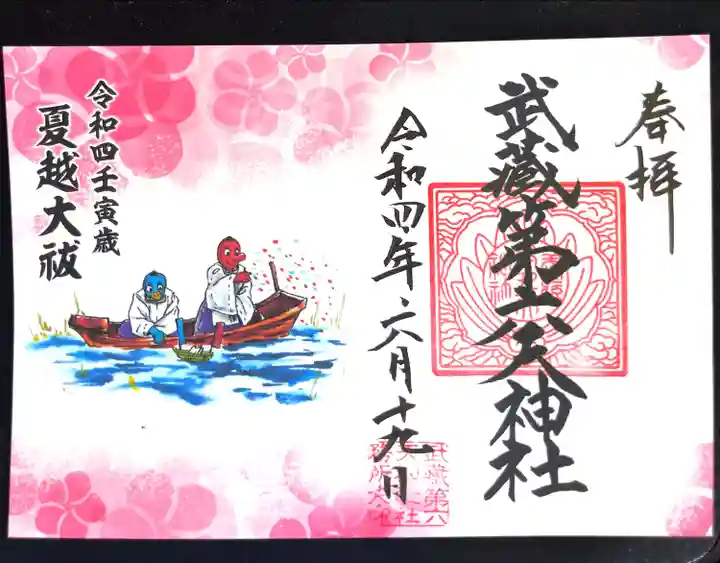 奉拝
武蔵第六天神社
令和四年六月十九日
令和四壬寅歳
夏越大祓